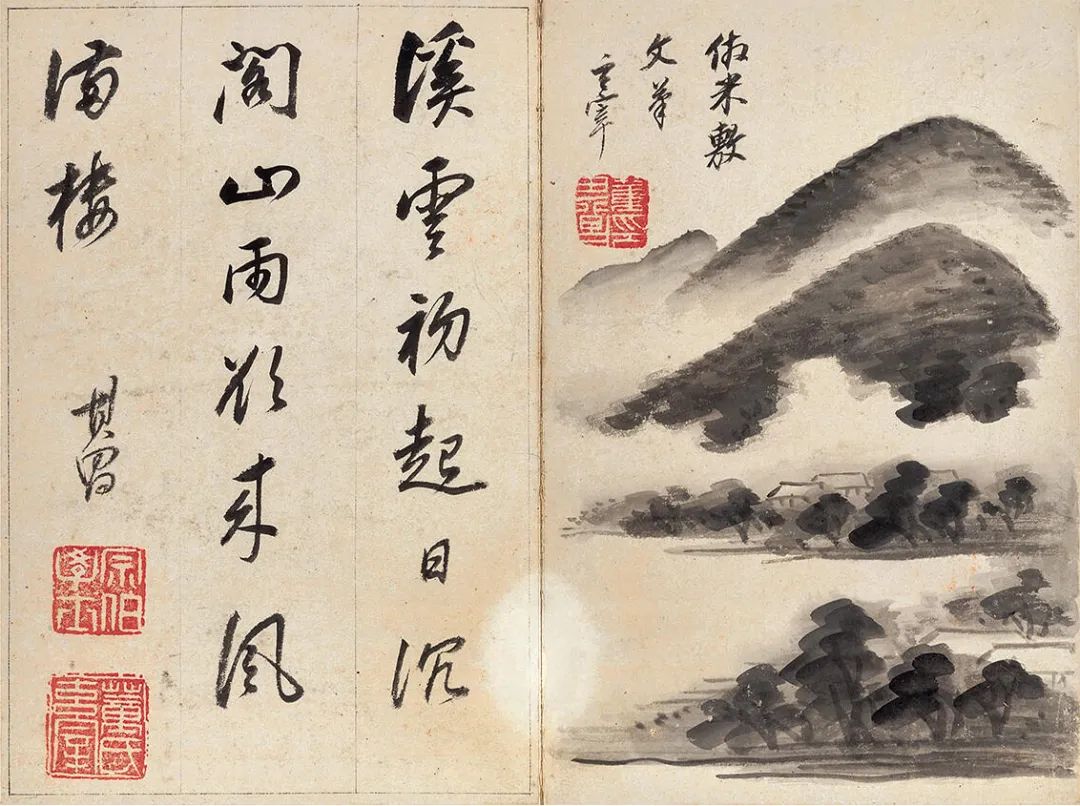 倣米敷
文筆
玄宰
溪雲初起日沉
閣山雨欲來風
滿樓
其昌
宗伯學士
董氏玄宰